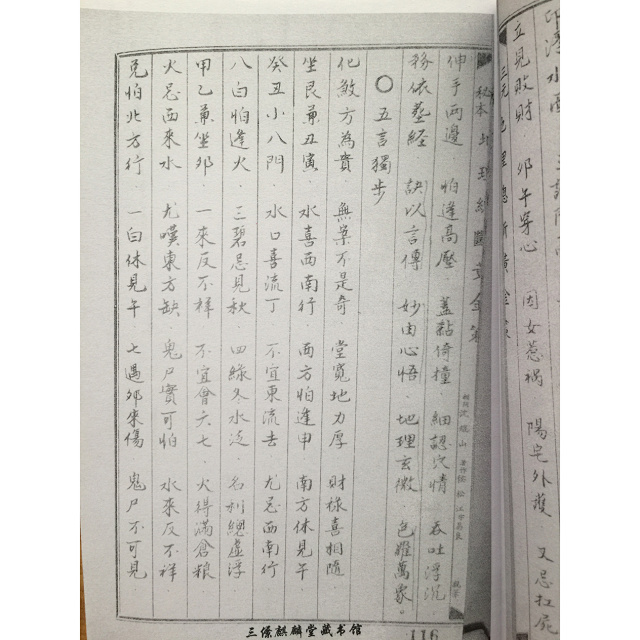 印浮水面
立見敗財 卯午穿心 因女惹禍 陽宅外護 又忌扛屍
伸手兩邊 怕逢高壓 蓋黏倚撞 細認穴情 吞吐浮沉
務依葬經 訣以言傳 妙由心悟 地理玄微 包羅萬象
〇五言獨步
化煞方為貴 無案不是奇 堂寬地力厚 財祿喜相隨
坐艮兼丑寅 水喜西南行 西方怕逢申 南方休見午
癸丑小八門 水口喜流丁 不宜東流去 尤忌西南行
八白怕逢火 三碧忌見秋 四綠冬水泛 名利總虛浮
甲乙兼坐卯 一來反不祥 不宜會六七 火得滿倉粮
火忌西來水 尤嘆東方缺 鬼尸實可怕 水來反不祥
兔怕北方行 一白休見午 七遇卯來傷 鬼尸不可見
116
三僚麒麟堂藏书馆